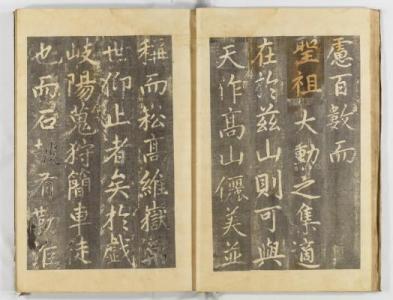 慮百數而
聖祖大之集適
在於茲山則可與
天作高山儷美並
稱而松高維嶽
世仰止者矣於戲
岐陽蒐狩簡車徒
也而石有勒淮